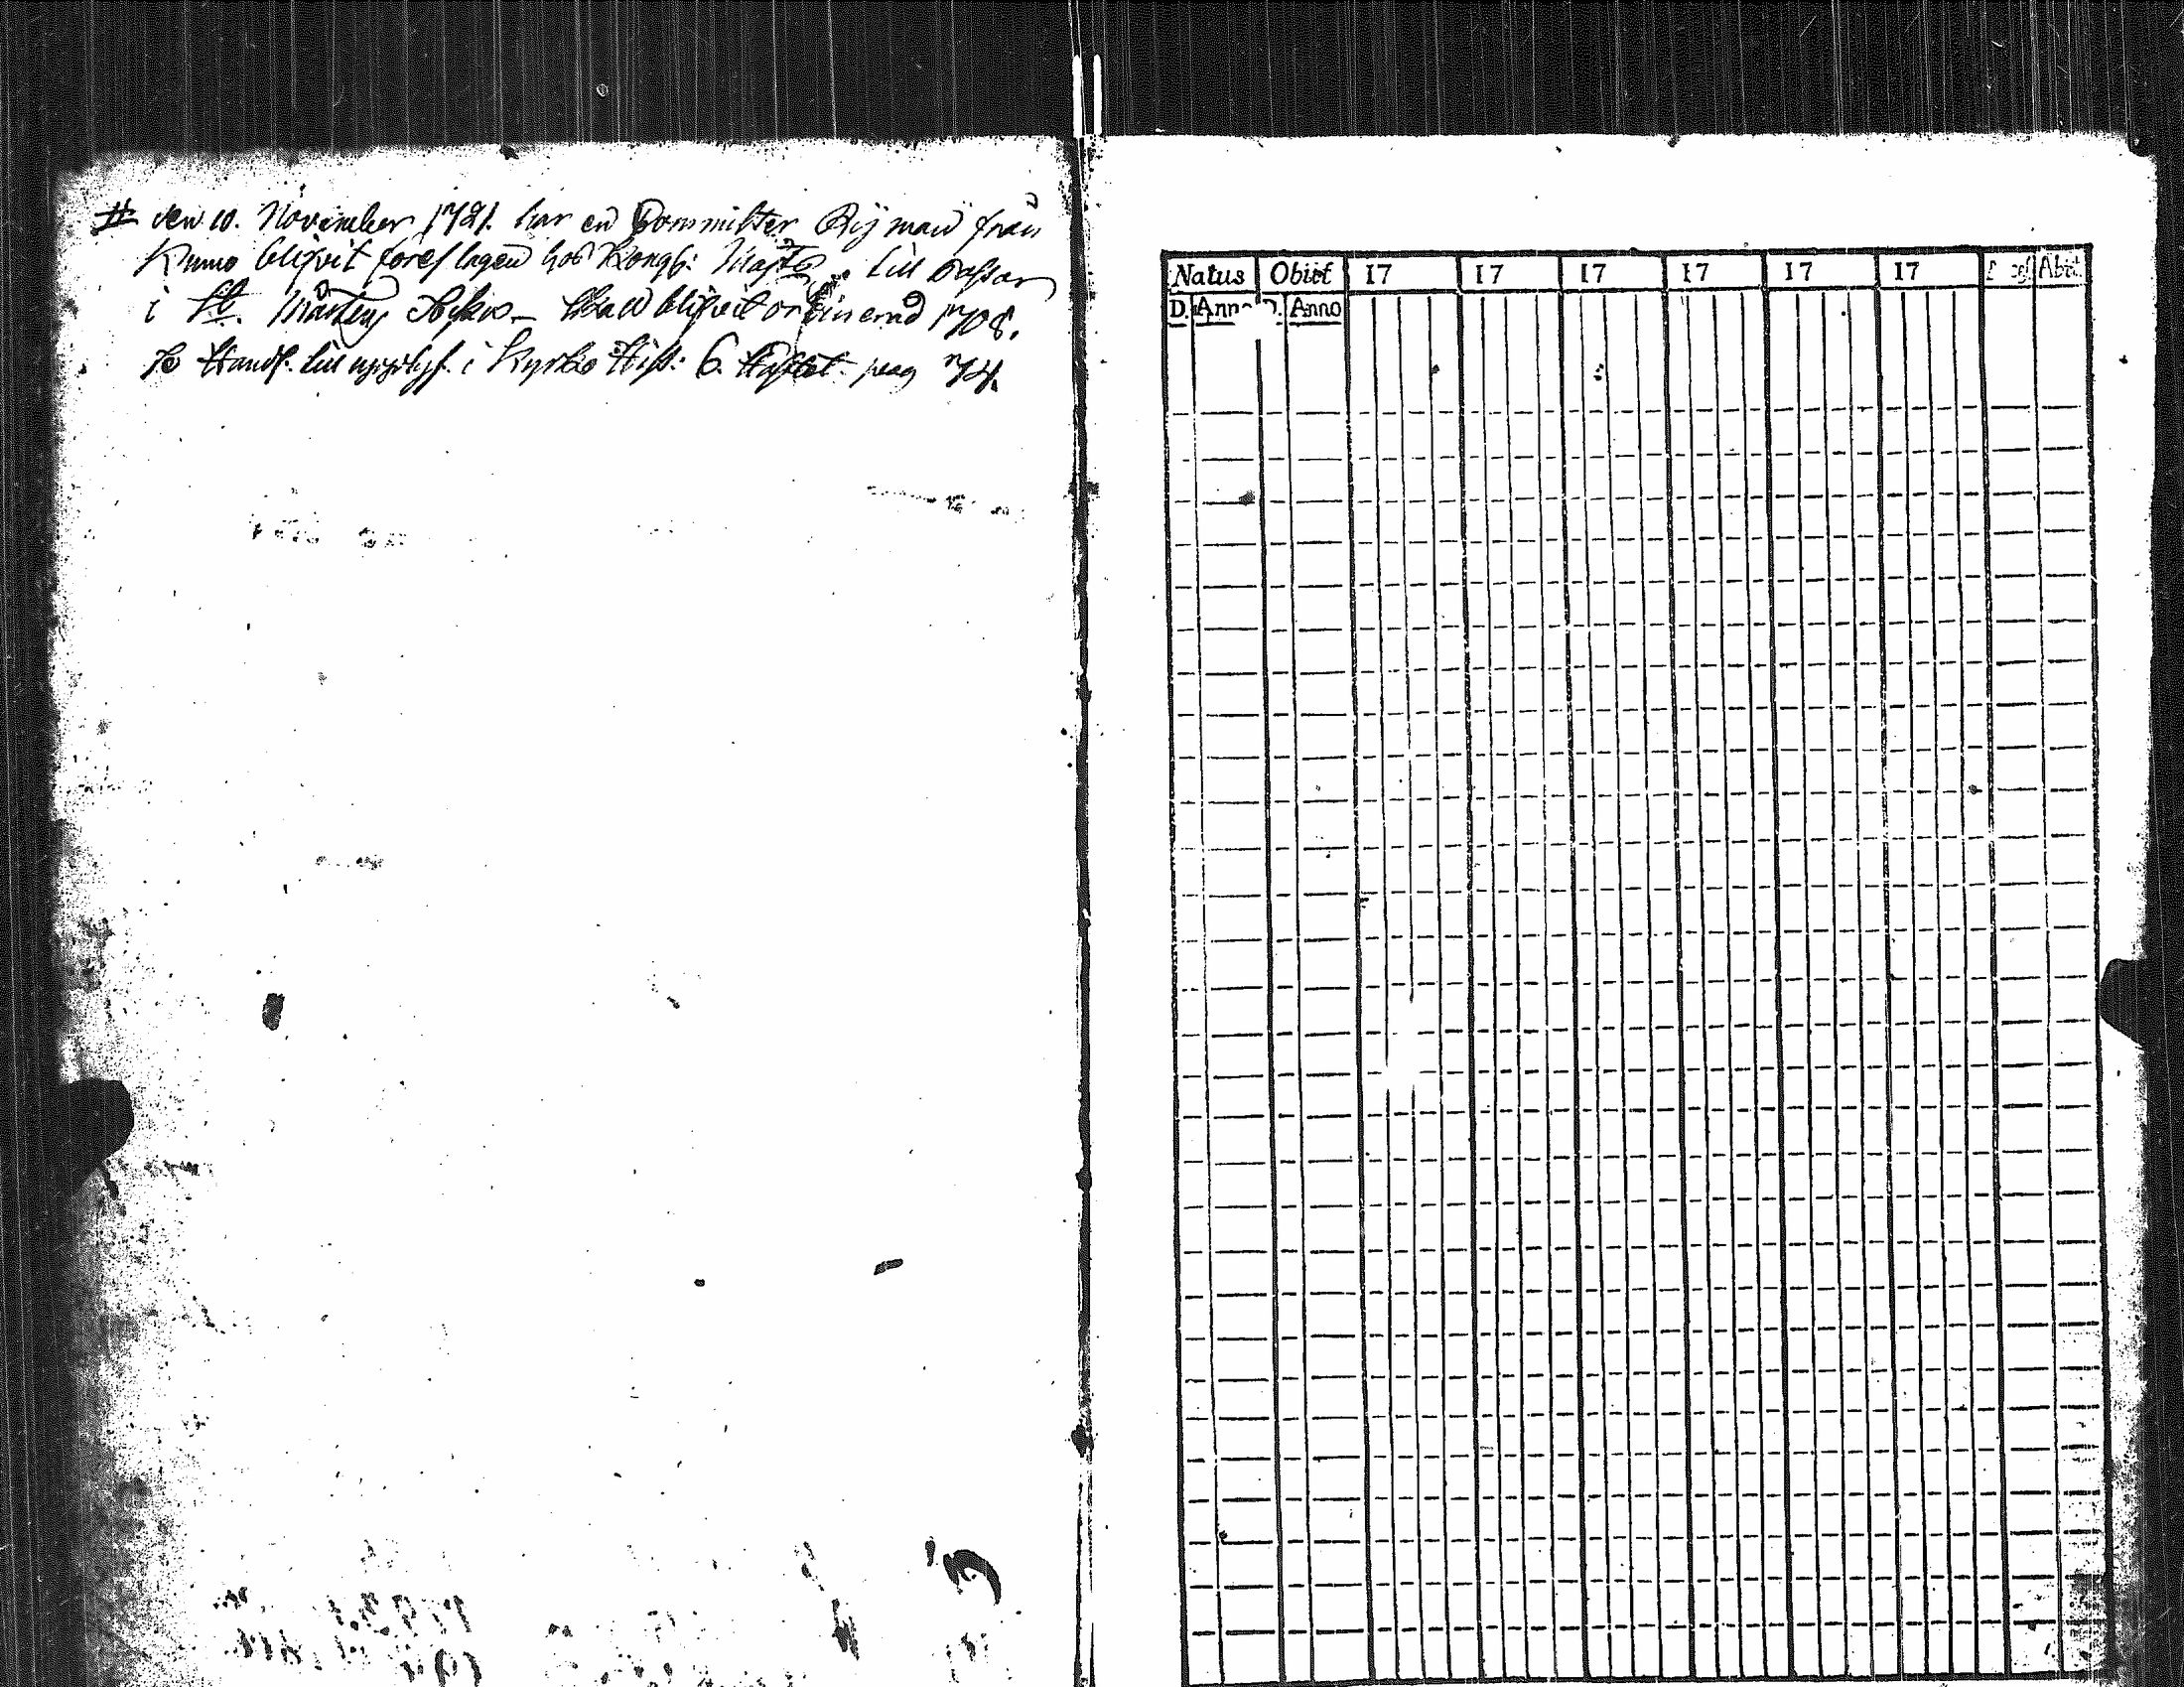 # den 10. November 1721. har en Comminister Rijman från
Kumo blifvit föreslagen hos Kongl: Majt till
i St. Mårtens Sokn – skall blifvit ordinerad 1708.
Se Handl. till uplys. i Kyrko Hist: 6. Häftet pag 74.
Natus Obiit 17 17 17 17 17 17 Abit.
D. Anno D. Anno